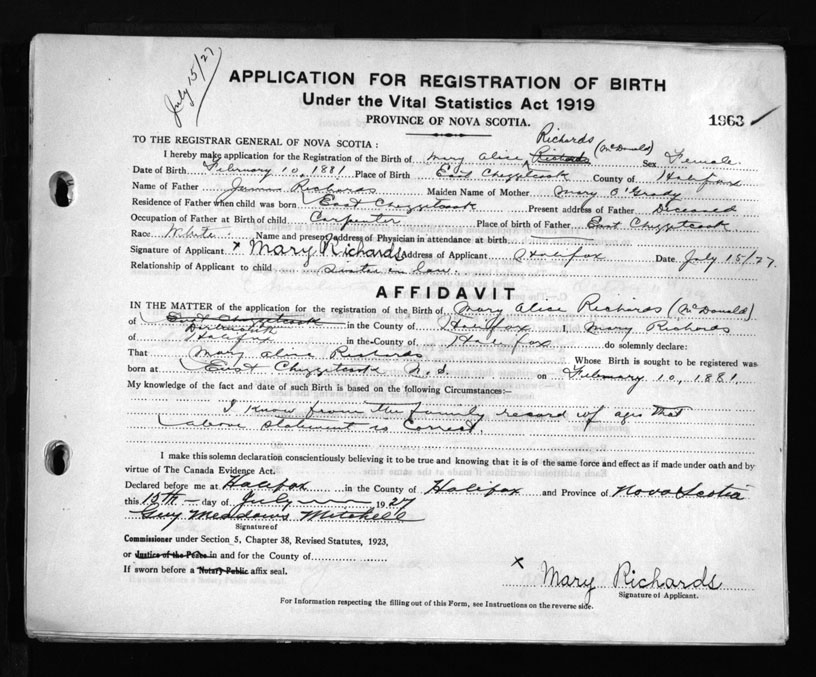 July 15/27
APPLICATION FOR REGISTRATION OF BIRTH
Under the Vital Statistics Act 1919
PROVINCE OF NOVA SCOTIA.
1963
TO THE REGISTRAR GENERAL OF NOVA SCOTIA:
Richards
I hereby make application for the Registration of the Birth of Mary Alice (McDonald) Sex Female
Date of Birth February 10, 1881 Place of Birth East Chezzetcook County of Halifax
Name of Father Richards Maiden Name of Mother Mary O'Grady
Residence of Father when child was born East Chezzetcook Present address of Father Deceased
Occupation of Father at Birth of child Carpenter Place of birth of Father East Chezzetcook
Race White Name and present Address of Physician in attendance at birth
Signature of Applicant x Mary Richards Address of Applicant Halifax Date July 15/27.
Relationship of Applicant to child Sister in law.
AFFIDAVIT
IN THE MATTER of the application for the registration of the Birth of Mary Alice Richards (McDonald)
of East Chezzetcook in the County of Halifax I, Mary Richards
Dartmouth
of Halifax in the County of Halifax do solemnly declare:
That Mary Alice Richards Whose Birth is sought to be registered was
born at East Chezzetcook N.S. on February 10, 1881
My knowledge of the fact and date of such Birth is based on the following Circumstances:—
I know from the family record of ages that
above statement is correct.
I make this solemn declaration conscientiously believing it to be true and knowing that it is of the same force and effect as if made under oath and by
virtue of The Canada Evidence Act.
Declared before me at Halifax in the County of Halifax and Province of Nova Scotia
this 19th day of July 1927
Guy Meadows Mitchell
Signature of
Commissioner under Section 5, Chapter 38, Revised Statutes, 1923,
or Justice of the Peace in and for the County of
If sworn before a Notary Public affix seal.
x Mary Richards
Signature of Applicant.
For Information respecting the filling out of this Form, see Instructions on the reverse side.